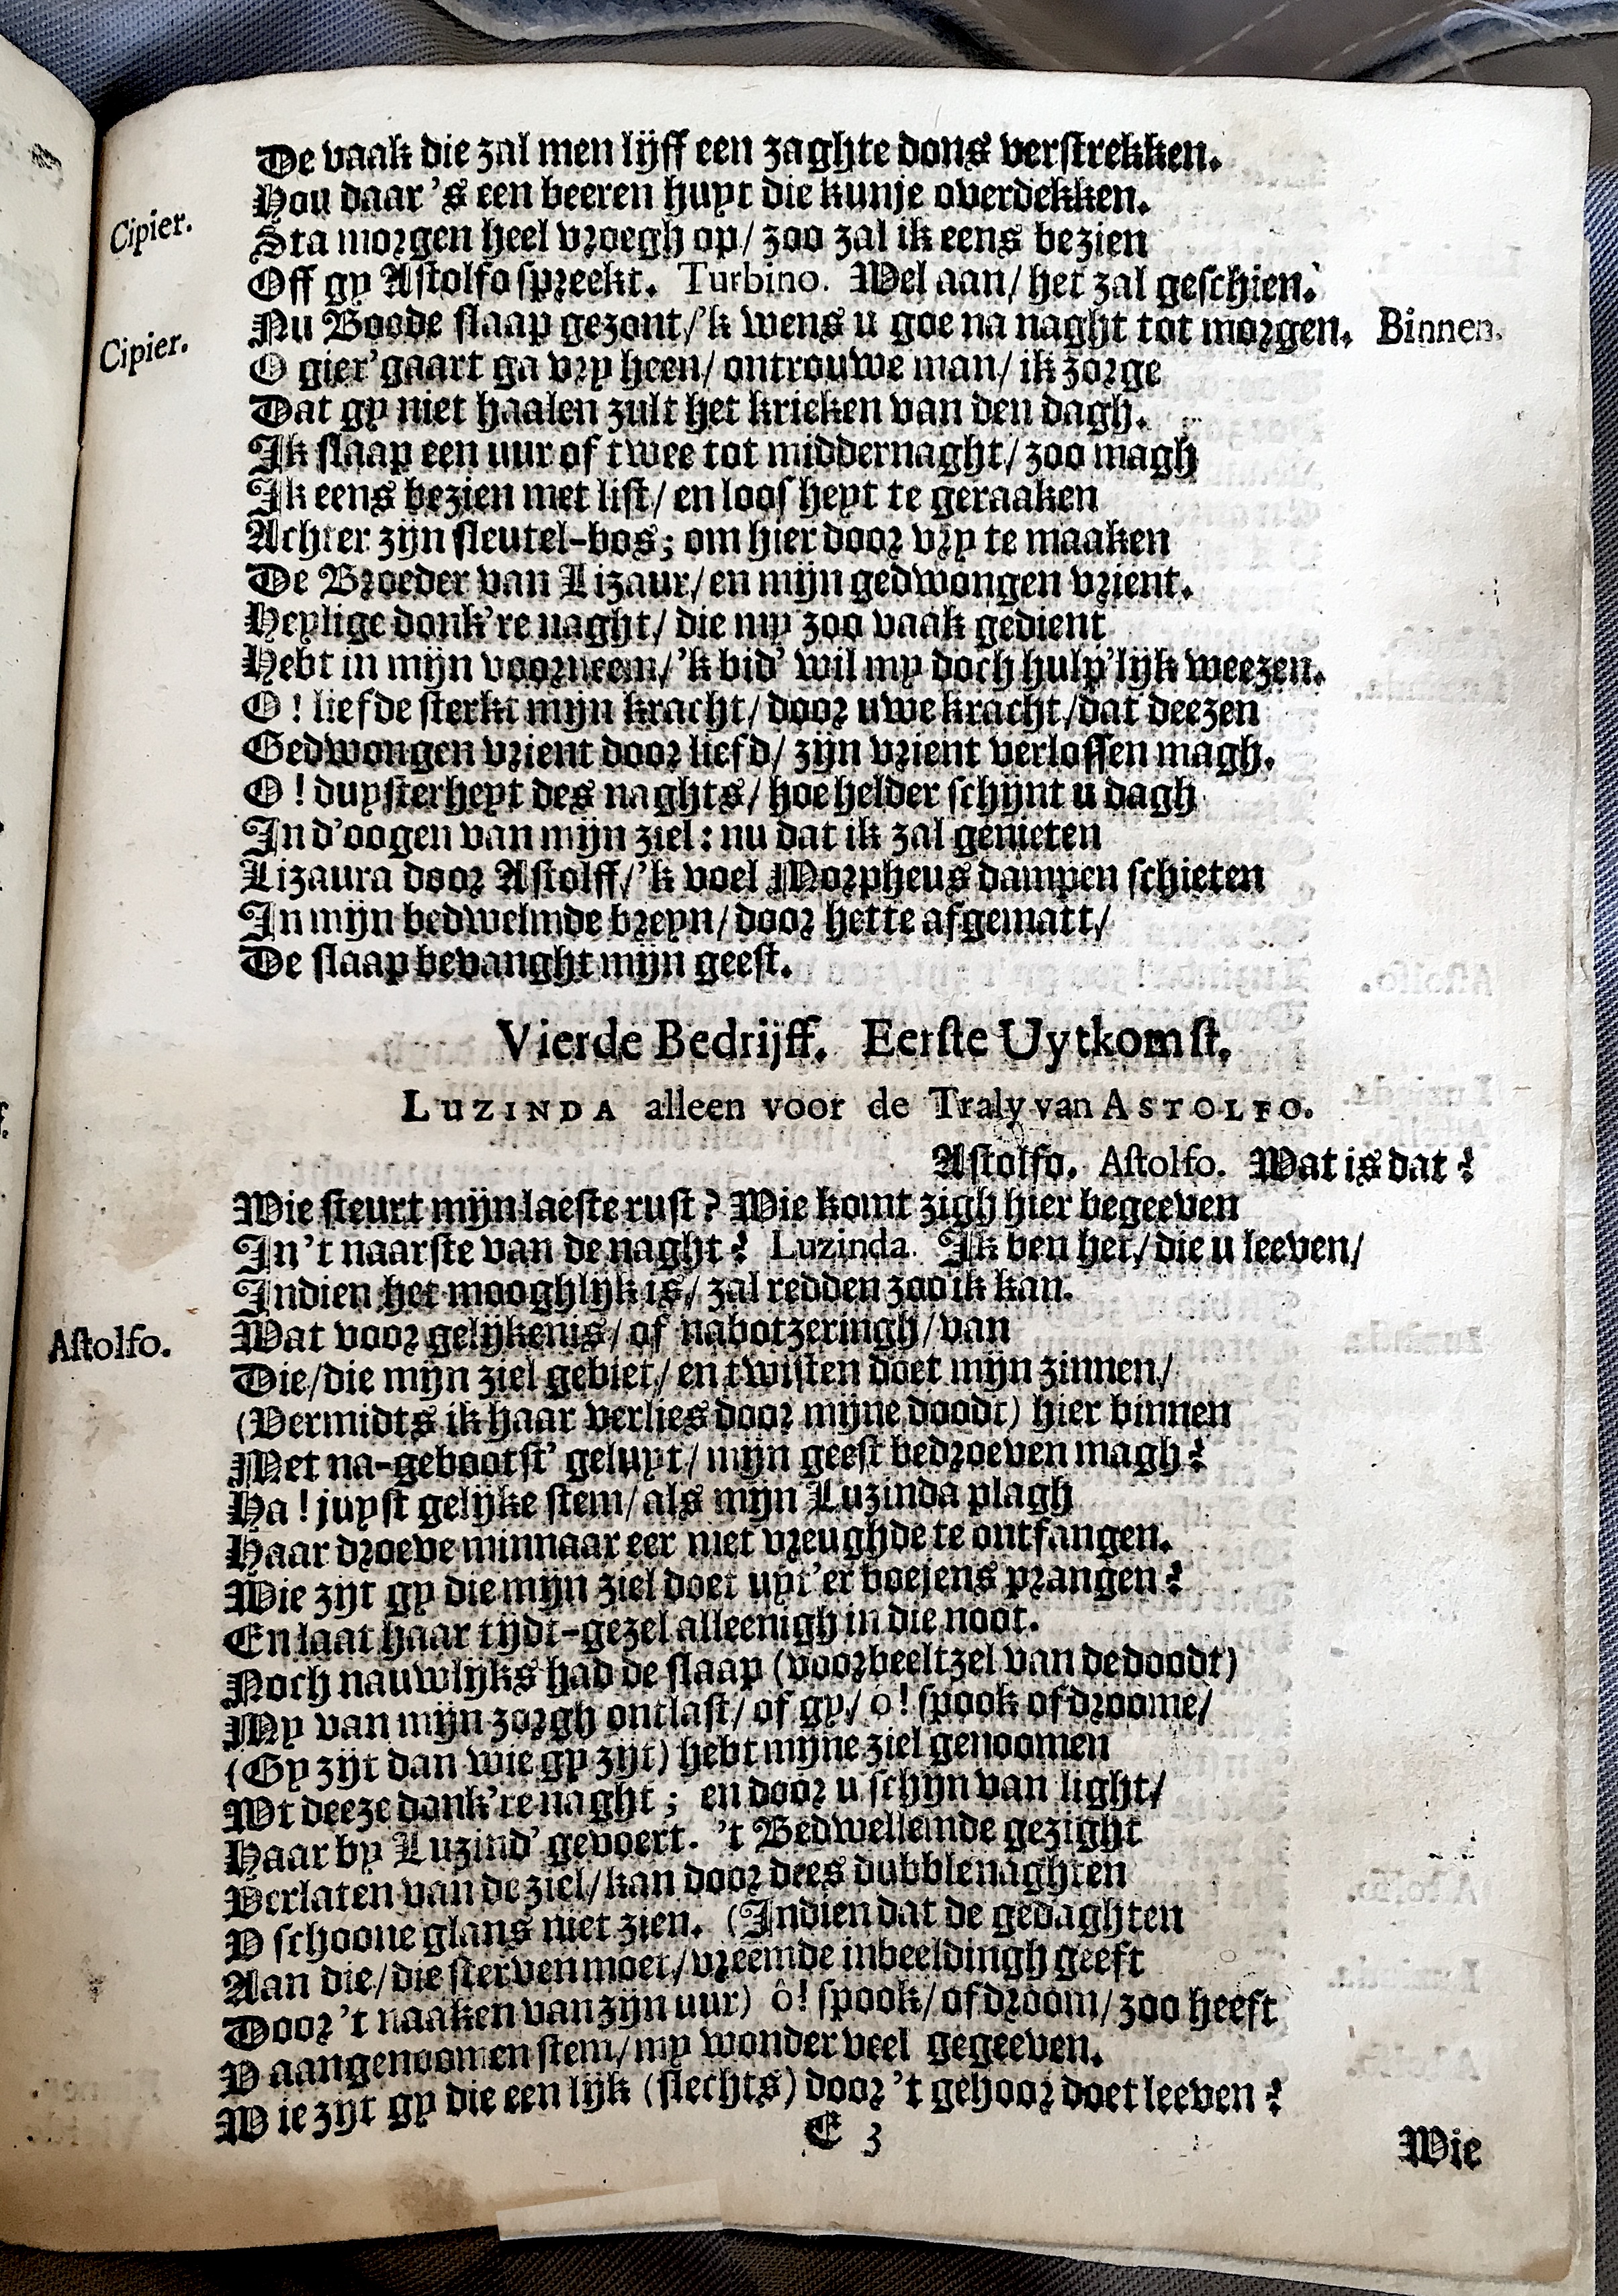 De vaak die zal men lijff een zaghte dons verstrekken.
Cipier. Hou daar 's een beeren huyt die kunje overdekken.
Sta morgen heel vroegh op/ zoo zal ik eens bezien
Off gy Astolfo spreekt. Turbino. Wel aan/ het zal geschien.
Cipier. Nu Boode slaap gezont/'k wens u goe na naght tot morgen. Binnen.
O gier'gaart ga vry heen/ ontrouwe man/ ik zorge
Dat gy niet haalen zult het krieken van den dagh.
Ik slaap een uur of twee tot middernaght/ zoo magh
Ik eens bezien met list/ en loosheyt te geraaken
Achter zijn sleutel-bos; om hier door vry te maaken
De Broeder van Lizaur/ en mijn gedwongen vrient.
Heylige donk're naght/ die my zoo vaak gedient
Hebt in mijn voorneem/'k bid' wil my doch hulp'lijk weezen.
O ! liefde sterkt mijn kracht/ door uwe kracht/dat deezen
Gedwongen vrient door liefd/ zijn vrient verlossen magh.
O ! duysterheyt des naghts/ hoe helder schijnt u dagh
In d'oogen van mijn ziel: nu dat ik zal genieten
Lizaura door Astolff/'k voel Morpheus dampen schieten
In mijn bedwelmde breyn/ door hette afgematt/
De slaap bevanght mijn geest.
Vierde Bedrijff. Eerste Uytkomst.
LUZINDA alleen voor de Traly van ASTOLFO.
Astolfo. Astolfo. Wat is dat?
Wie steurt mijn laeste rust? Wie komt zigh hier begeeven
In't naarste van de naght? Luzinda. Ik ben het/ die u leeven/
Indien het mooghlijk is/ zal redden zoo ik kan.
Astolfo. Wat voor gelijkenis/ of nabotzeringh/ van
Die/die mijn ziel gebiet/ en twisten doet mijn zinnen/
(Vermidts ik haar verlies door mijne doodt) hier binnen
Met na-gebootst' geluyt/ mijn geest bedroeven magh?
Ha ! juyst gelijke stem/ als mijn Luzinda plagh
Haar droeve minnaar eer met vreughde te ontfangen.
Wie zijt gy die mijn ziel doet uyt'er boejens prangen?
En laat haar tijdt-gezel alleenigh in die noot.
Noch nauwlijks had de slaap (voorbeeltzel van de doodt)
My van mijn zorgh ontlast/ of gy/ ô! spook of droome/
(Gy zijt dan wie gy zijt) hebt mijne ziel genoomen
Wt deeze donk're naght; en door u schijn van light/
Haar by Luzind' gevoert. 't Bedwellemde gezight
Verlaten van de ziel/ kan door dees dubble naghten
V schoone glans niet zien. (Indien dat de gedaghten
Aan die/ die sterven moet/ vreemde inbeeldingh geeft
Door 't naaken van zijn uur) ô! spook/ of droom/ zoo heeft
V aangenoomen stem/ my wonder veel gegeeven.
Wie zijt gy die een lijk (slechts) door 't gehoor doet leeven?
E 3
Wie